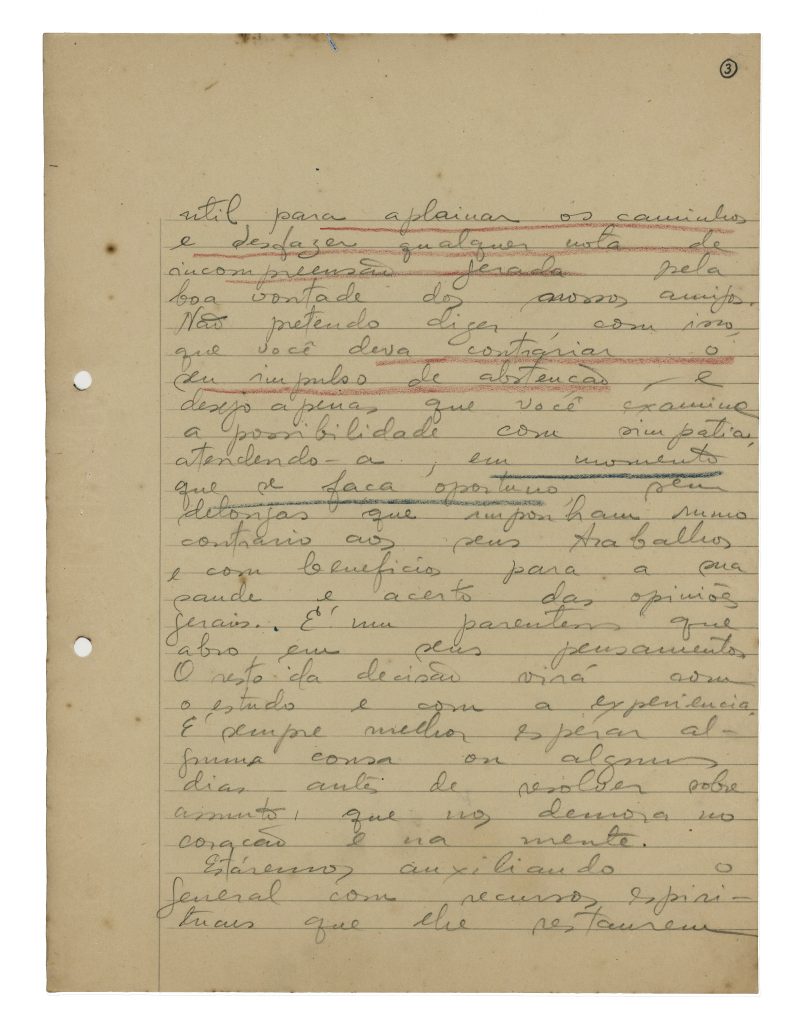 3
util para aplainar os caminhos
e desfazer qualquer nota de
incompreensão gerada pela
boa vontade dos nossos amigos.
Não pretendo dizer, com isso,
que você deva contrariar o
seu impulso de abstenção, e
desejo apenas que você examine
a possibilidade com simpatia,
atendendo-a, em momento
que se faça oportuno, sem
delongas que imponham rumo
contrario aos seus trabalhos
e com beneficios para a sua
saude e acerto das opiniões
gerais. É um parentesis que
abro em seus pensamentos
O resto da decisão virá com
o estudo e com a experiencia.
É sempre melhor esperar al-
guma cousa ou alguns
dias, antes de resolver sobre
assunto, que nos demora no
coração e na mente.
Estaremos auxiliando o
general com recursos espiri-
tuais que lhe restaurem